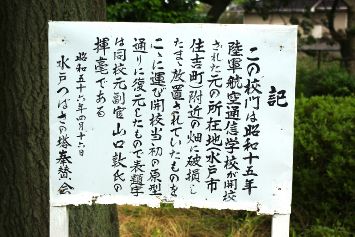 記
この校門は昭和十五年
陸軍航空通信学校が開校
された元の所在地(水戸市
住吉町)附近の畑に破損し
たまゝ放置されていたものを
こゝに運び開校当初の原型
通りに復元したもので表題字
は同校元副官山口敦氏の
揮毫である
昭和五十六年四月十六日
水戸つばさの塔奉賛会